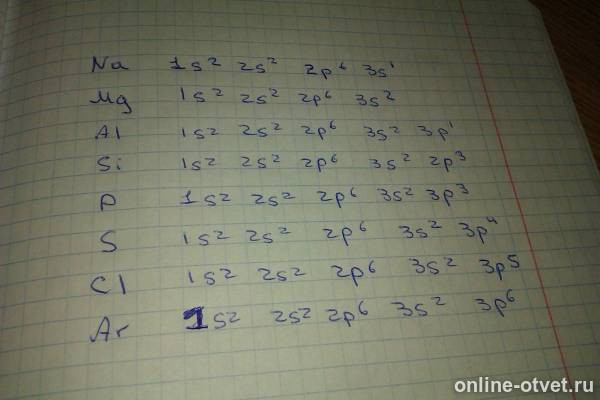 Na 1s² 2s² 2p⁶ 3s¹
Mg 1s² 2s² 2p⁶ 3s²
Al 1s² 2s² 2p⁶ 3s² 3p¹
Si 1s² 2s² 2p⁶ 3s² 2p³
P 1s² 2s² 2p⁶ 3s² 3p³
S 1s² 2s² 2p⁶ 3s² 3p⁴
Cl 1s² 2s² 2p⁶ 3s² 3p⁵
Ar 1s² 2s² 2p⁶ 3s² 3p⁶
online-otvet.ru